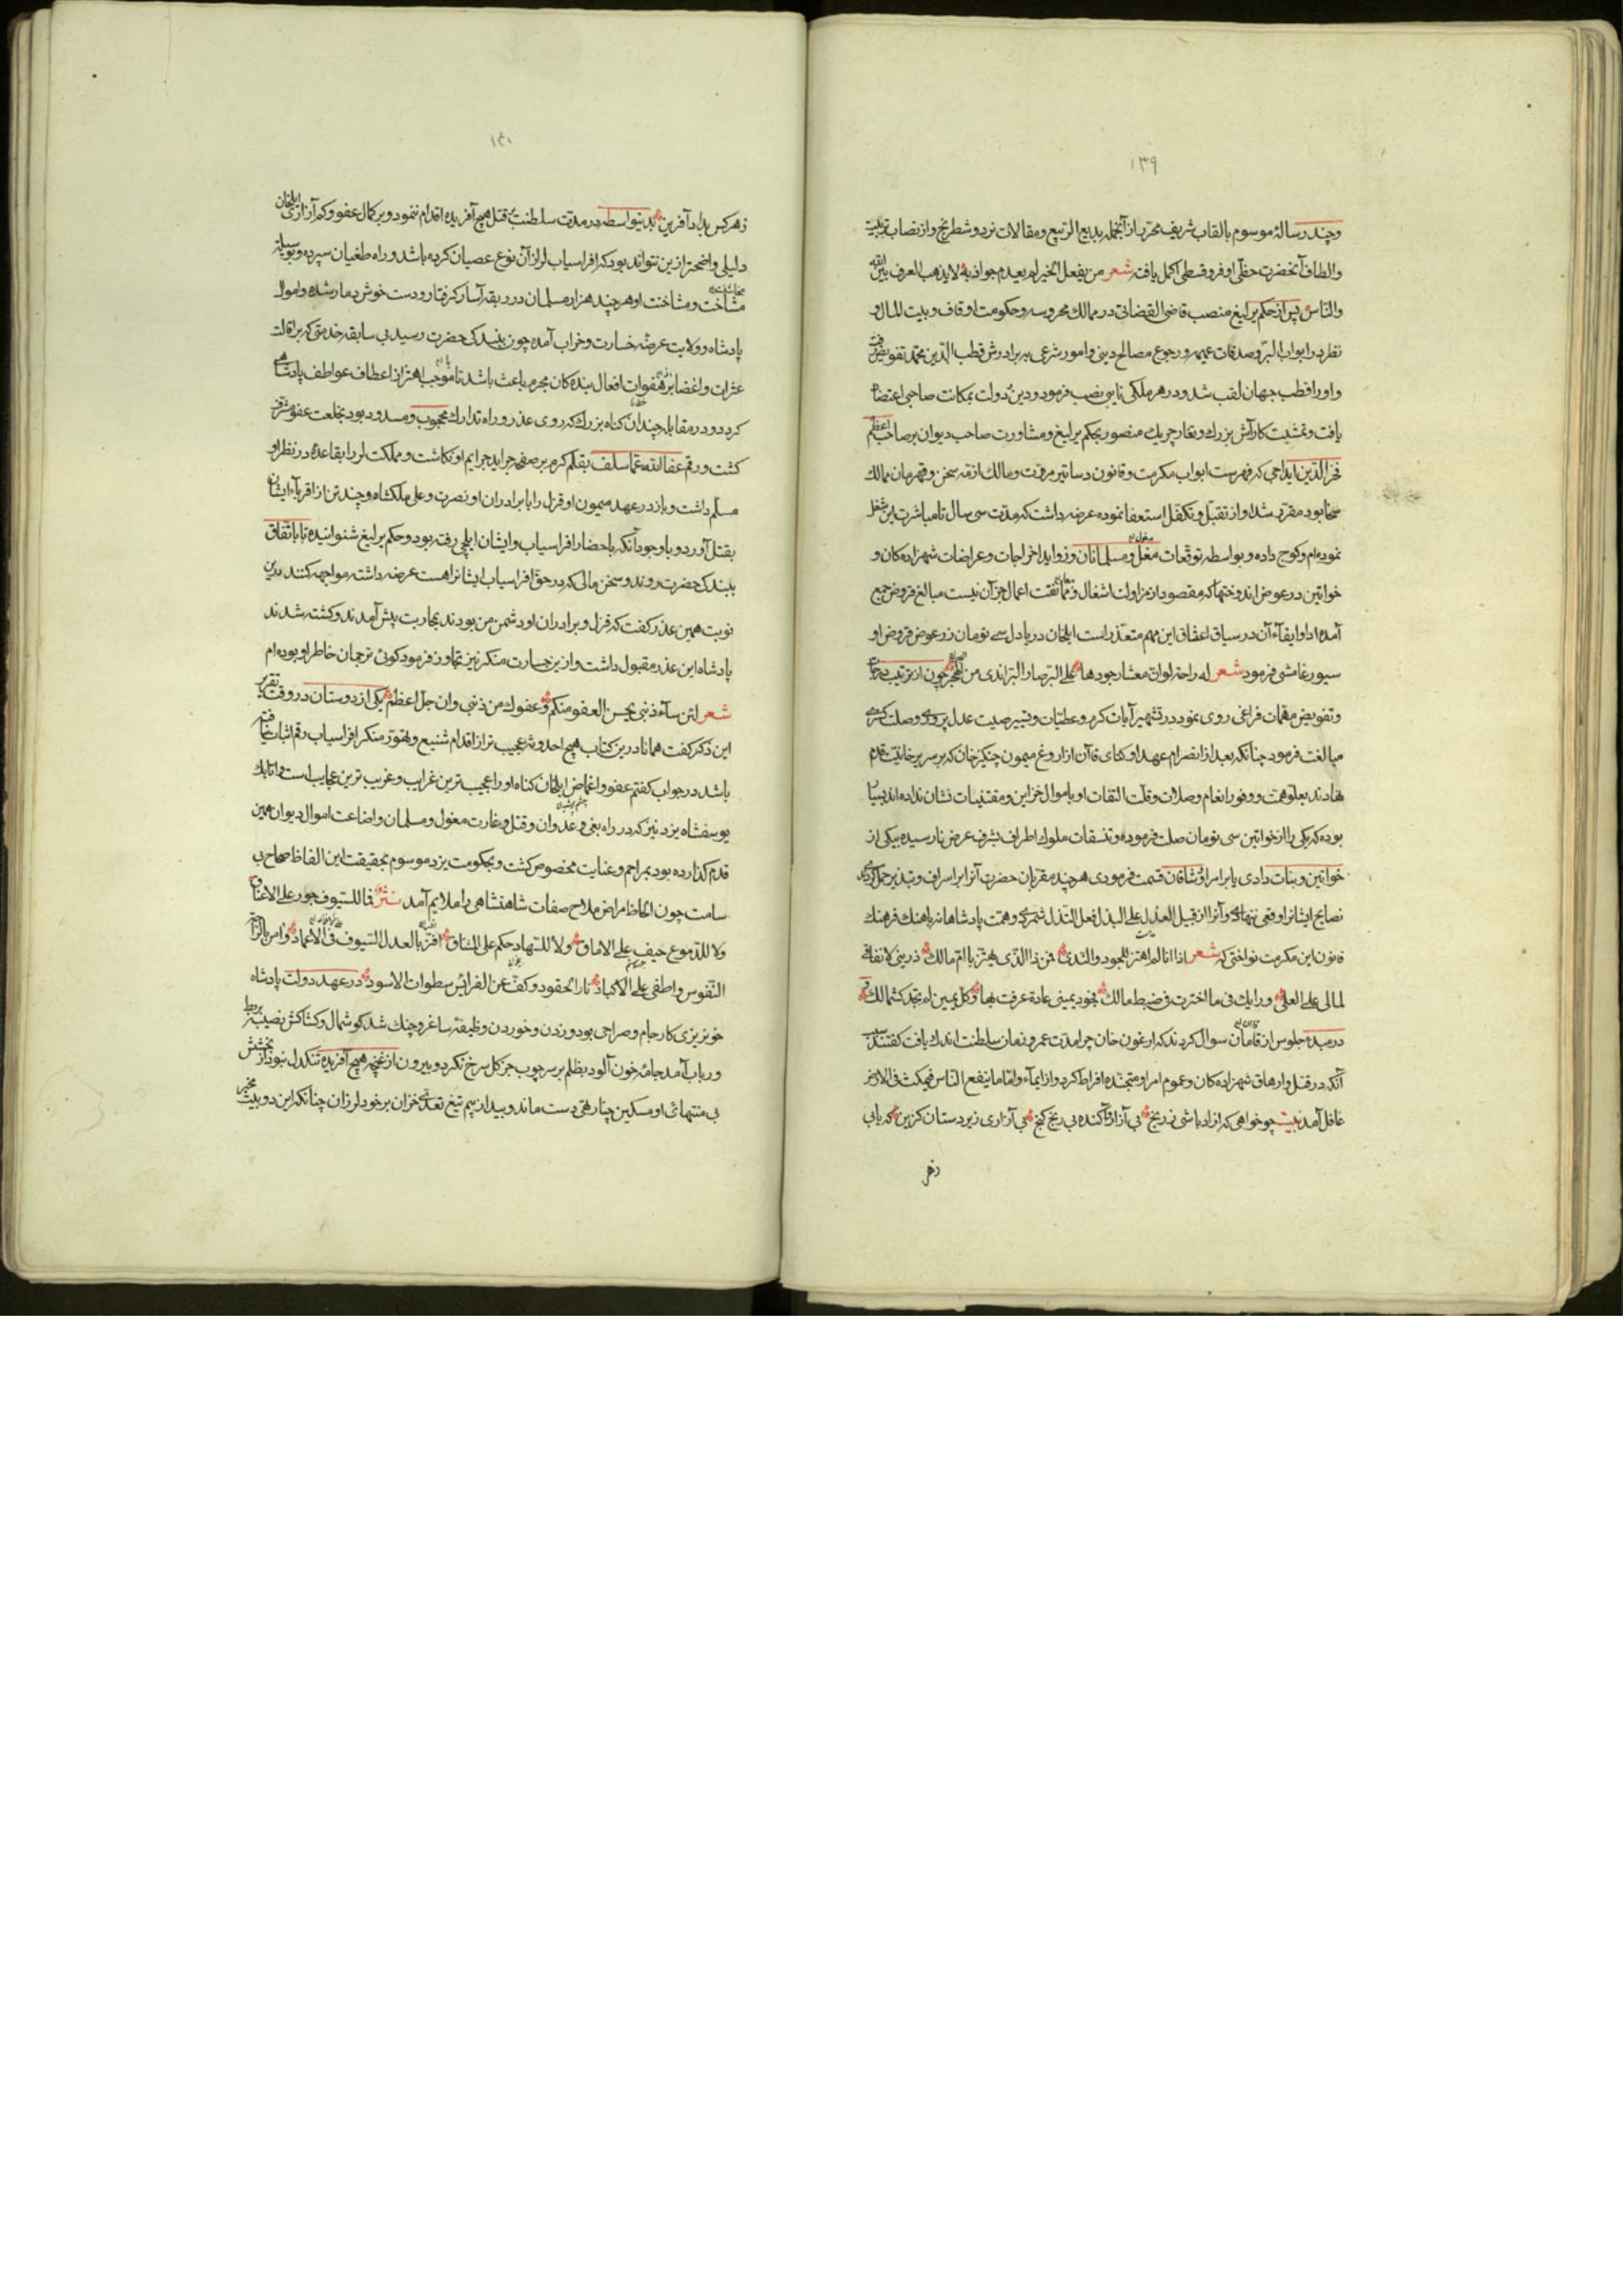 ۱۳۹
و چند رسالهٔ موسوم بالقاب شریف محرر از آنجمله بدیع الربیع و مقالات نرد و شطرنج و از نصاب تربیت
و الطاف آنحضرت حظّی اوفر و قسطی اکمل یافت شعر من یفعل الخیر لم یعدم جوازیه لا یذهب العرف بین الله
و الناس پس از حکم یرلیغ منصب قاضی القضاتی در ممالک محروسه و حکومت اوقاف و بیت المال و
نظر در ابواب البرّ و صدقات عمیمه و رجوع مصالح دینی و امور شرعی به برادرش قطب الدین محمد تفویض رفت
و او را قطب جهان لقب شد و در هر ملکی نایبی نصب فرمود و دین دولت بمکانت صاحبی اعتضاد
یافت و تمشیت کار آش بزرک و تغار چریک منصور بحکم یرلیغ و مشاورت صاحب دیوان بر صاحب اعظم
فخر الدین ایداجی که فهرست ابواب مکرمت و قانون دساتیر مروّت و مالک ازمّه سخن و قهرمان ممالک
سخا بود مقرر شد او از تقبل و تکفل استعفا نموده عرضه داشت که مدت سی سال تا مباشرت این شغل
نموده‌ام و کوج داده و بواسطه توقعات مغل و مسلمانان و زواید اخراجات و عراضات شهزادکان و
خواتین در عوض اندوختها که مقصود از مزاولت اشغال و اعمال جز آن نیست مبالغ قروض جمع
آمده ادا و ایفاء آن در سیاق اعناق این مهم متعذر است ایلخان دریا دل سی تومان زر عوض قروض او
سیورغامشی فرمود شعر له راحة لو ان معشار جودها علی البر صار البر اندی من البحر چون از ترتیب
و تفویض مهمات فراغی روی نمود در تشهیر آیات کرم و عطیات و تسییر صیت عدل پروری و صلت
مبالغت فرمود چنانکه بعد از انصرام عهد اوکتای قاآن از اروغ میمون چنکیز خان که بر سریر خانیّت قدم
نهادند بعلو همت و وفور انعام و صلات و قلت التفات او باموال خزاین و مقتنیات نشان نداده‌اند بسیار
بوده که یکی را از خواتین سی تومان صلت فرموده و تنسقات ملوک اطراف بشرف عرض نارسیده بیکی از
خواتین و بنات دادی یا بر امرا و اشاقان قسمت فرمودی هر چند مقربان حضرت آنرا بر اسراف و تبذیر حمل کردندی
نصایح ایشانرا وقعی ننهادی و آنرا از قبیل العذل علی البذل فعل النذل شمردی و همت پادشاهانه باهنک فرهنک
قانون این مکرمت نواختی که شعر اذا انا لم اهتز للجود و الندی فمن ذا الذی یهتز یا ام مالک ذرینی لانفاقی
لمالی علی العلی و رایک فی ما اخترت فی ضبط مالک فجود یمینی عادة عرفت بها و کل یمین لم تجد کشمالک
در مبدء جلوس از قامان سوال کردند که ارغون خان چرا مدت عمر و زمان سلطنت اندک یافت کفتند
آنکه در قتل و ارهاق شهزادکان و عموم امرا و متجنده افراط کرد و از ایماء و اما ما ینفع الناس فیمکث فی الارض
غافل آمد بیت چو خواهی که آزاد باشی ز رنج بی آزار و آکنده بی رنج کنج بی آزاری زیردستان کزین که یابی
زهر
۱۴۰
ز هر کس بداد آفرین بدینواسطه در مدت سلطنت بر قتل هیچ آفریده اقدام ننمود و بر کمال عفو و کم آزاری ایلخان
دلیلی واضحتر ازین نتواند بود که افراسیاب لر از آن نوع عصیان کرده باشد و راه طغیان سپرده و بوسیلهٔ
مشاخت و مشاخنت او هر چند هزار مسلمان در ربقه آسار کرفتار و دست خوش دمار شده و اموال
پادشاه و ولایت عرضهٔ خسارت و خراب آمده چون ببندکی حضرت رسید بی سابقه خدمتی که بر اقالت
عثرات و اغضا بر هفوات افعال بندکان مجرم باعث باشد تا موجب اهتزاز اعطاف عواطف پادشاهی
کردد و در مقابل چندان کناه بزرک که روی عذر و راه تدارک محجوب و مسدود بود بخلعت عفو مشرف
کشت و رقم عفا الله عما سلف بقلم کرم بر صفحه جراید جرایم او نکاشت و مملکت لر را بقاعدهٔ در نظر او
مسلّم داشت و باز در عهد میمون او قزل را با برادران او نصرت و علی ملکشاه و چند تن از اقرباء ایشان
بقتل آورد و با وجود آنکه باحضار افراسیاب و ایشان ایلچی رفته بود و حکم یرلیغ شنوانیده تا باتفاق
ببندکی حضرت روند و سخن مالی که در حق افراسیاب ایشانرا هست عرضه داشته مواجهه کنند درین
نوبت همین عذر کفت که قزل و برادران او دشمن من بودند بمحاربت پیش آمدند و کشته شدند
پادشاه این عذر مقبول داشت و از این جسارت منکر نیز تجاوز فرمود کوئی ترجمان خاطر او بوده‌ام
شعر لئن ساء ذنبی بحسن العفو منکم و عفوک من ذنبی و ان جل اعظم یکی از دوستان در وقت تقریر
این ذکر کفت همانا درین کتاب هیچ احدوثه عجیب تر از اقدام شنیع و تهور منکر افراسیاب رقم اثبات نیافته
باشد در جواب کفتم عفو و اغماض ایلخان کناه او را عجیب ترین غرایب و غریب ترین عجایب است و اتابک
یوسفشاه یزد نیز که در راه بغی و عدوان و قتل و غارت مغول و مسلمان و اضاعت اموال دیوان همین
قدم کذارده بود بمراحم و عنایت مخصوص کشت و بحکومت یزد موسوم بحقیقت این الفاظ صحاح بی
سامت چون الحاظ مراض ملاح صفات شاهنشاهی را ملایم آمد نثر فما للسیوف جور علی الاعناق
و لا للدموع حیف علی الاماق و لا للسهاد حکم علی العشاق اقرّ بالعدل السیوف فی الاغماد و امن
النفوس و اطفی علی الاکباد نار الحقود و کفّ عن الفرایس سطوات الاسود در عهد دولت پادشاه
خونریزی کار جام و صراحی بود و زدن و خوردن وظیفه ساغر و چنک شد کوشمال و کشاکش نصیب بربط
و رباب آمد جامه خون آلود بظلم بر سر چوب جز کل سرخ نکرد و بیرون از غنچه هیچ آفریده تنکدل نبود از بخشش
بی منتهای او مسکین چنار تهی دست ماند و بید از بیم تیغ تعدی خزان بر خود لرزان چنانکه این دو بیت مخبر